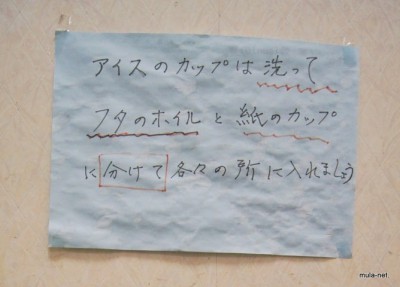 アイスのカップは洗って
フタのホイルと紙のカップ
に分けて各々の所に入れましょう
mula-net